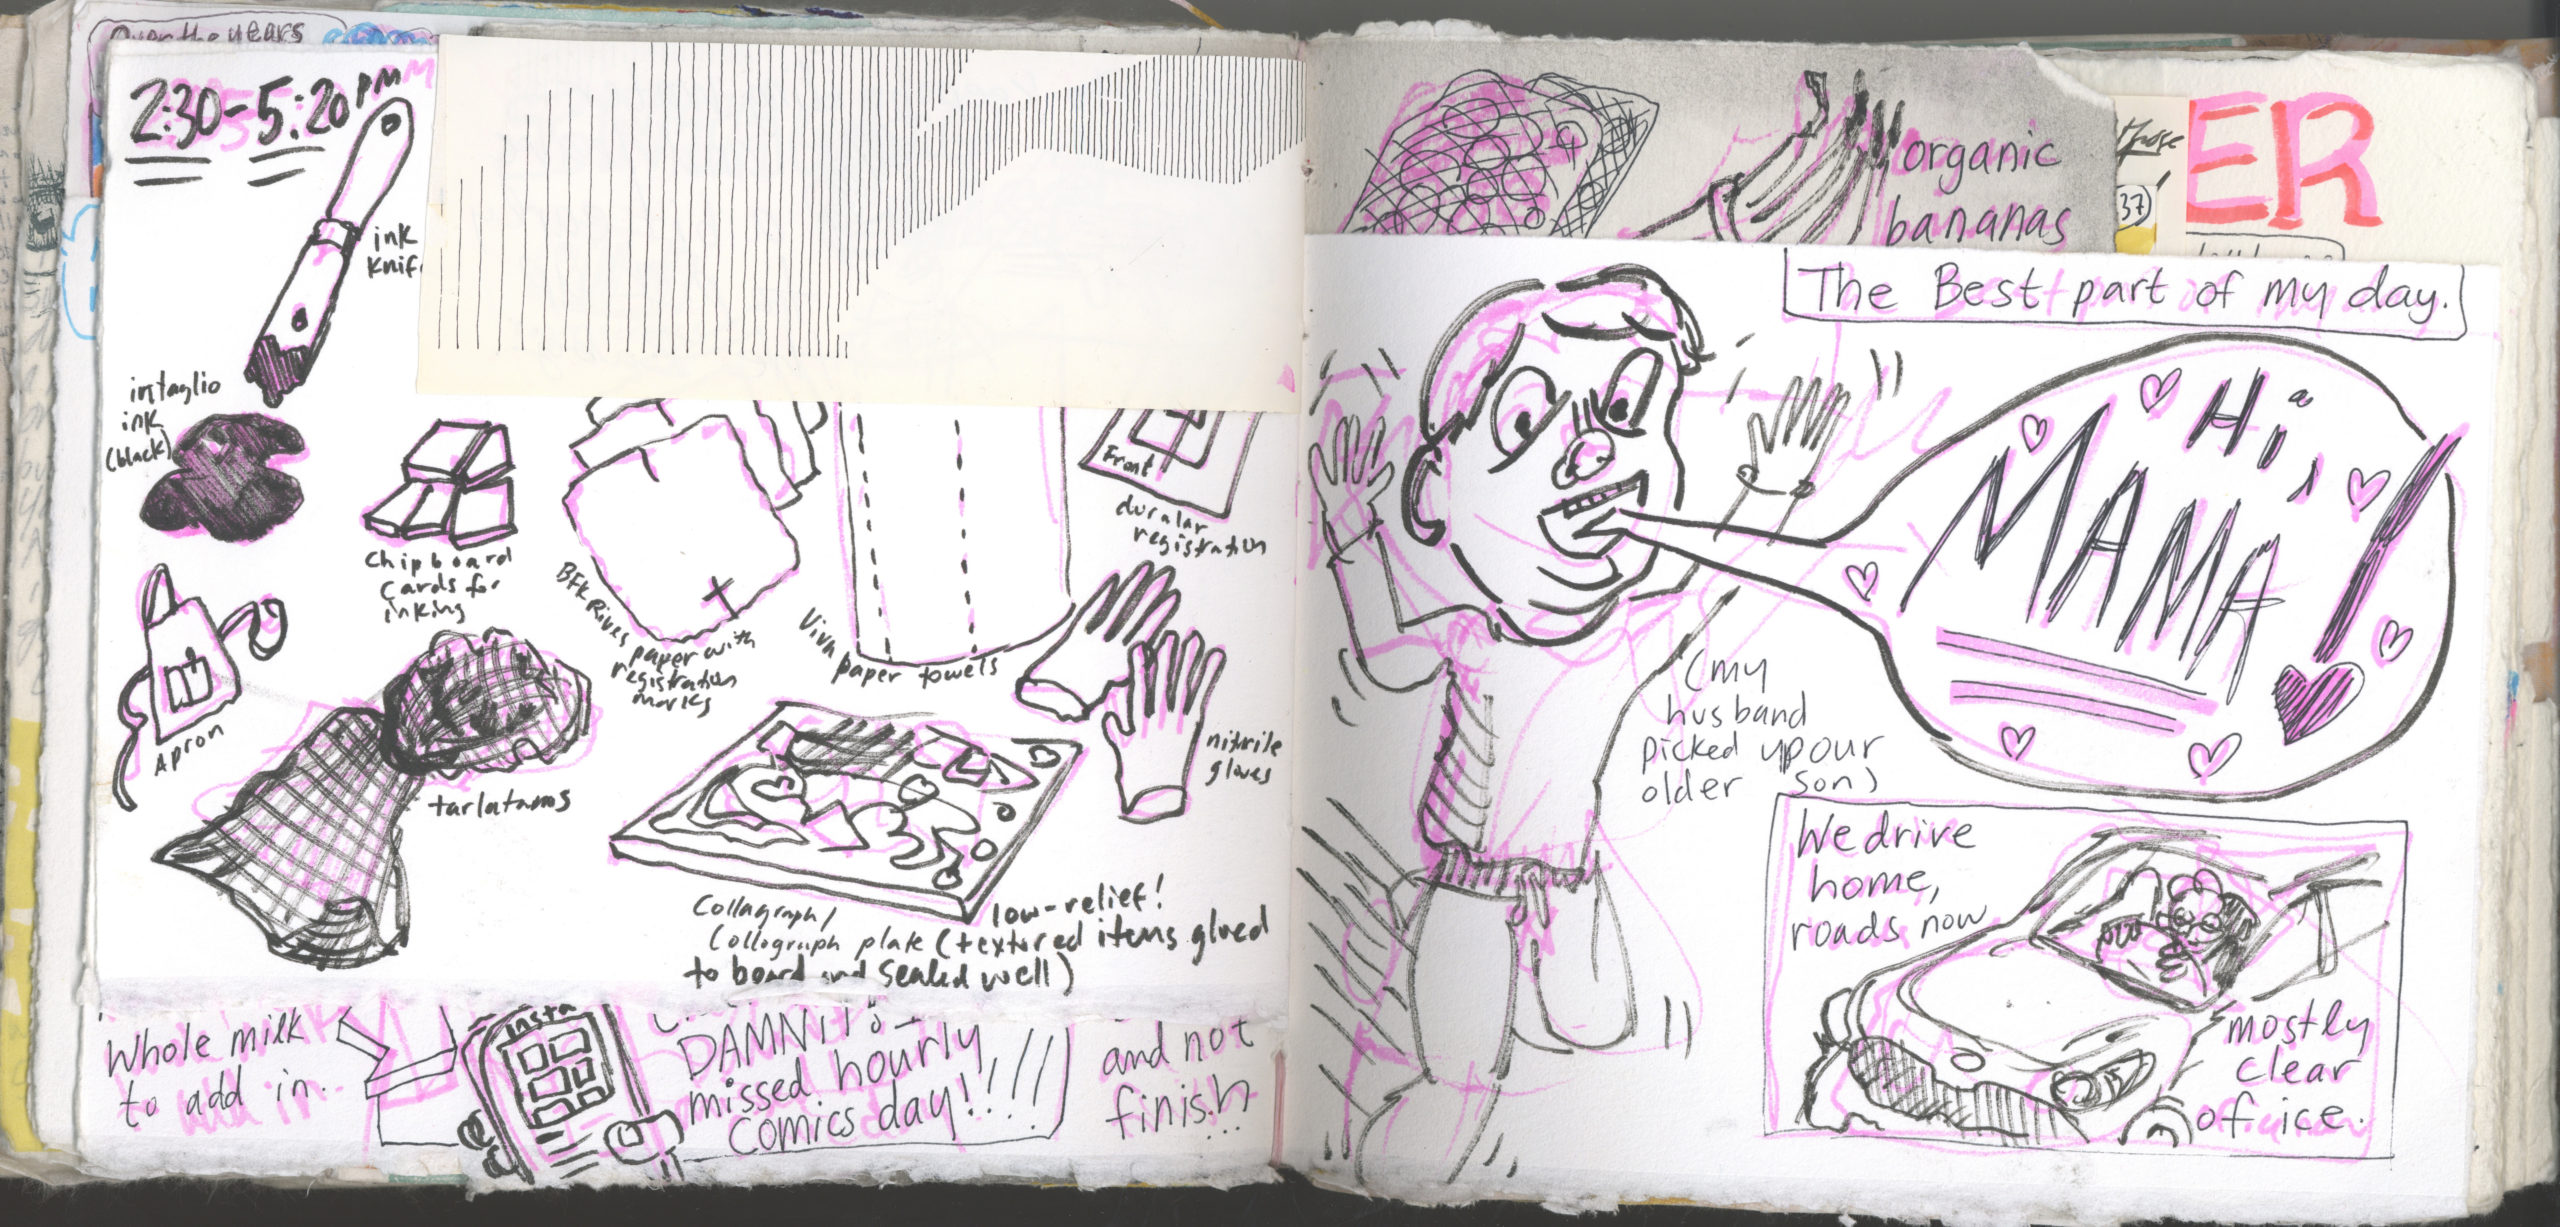 Over the years
2:30-5:20 PM
ink
knif
intaglio
ink
(black)
chipboard
cards for
inking
BFK Rives
paper with
registration
marks
Viva
paper towels
Front
duralar
registration
Apron
tarlatans
nitrile
gloves
Collagraph/
Collograph plate (textured items glued
to board and sealed well)
low-relief!
Whole milk
to add in.
insta
DAMNIT!
missed hourly
comics day!!!!!
and not
finish...
organic
bananas
37)
ER
The Best part of my day.
Hi,
MAMA!
(my
husband
picked up our
older son)
We drive
home,
roads now
mostly
clear
of ice.